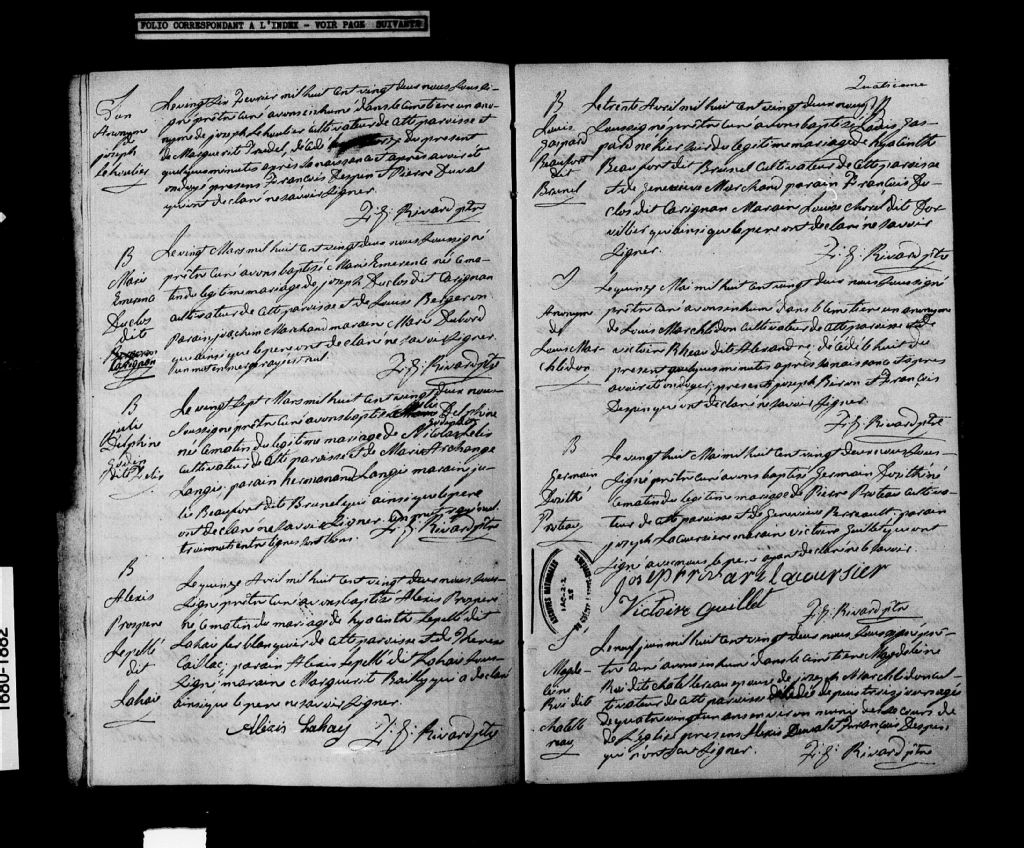 FOLIO CORRESPONDANT A L'INDEX - VOIR PAGE SUIVANTE
Le vingt six Fevrier mil huit cent vingt deux nous sousi-
gné prêtre curé avons enhumé dans le cimetiere un ano-
nyme de joseph Lehoulier cultivateur de cette paroisse et
de Marguerit Trudel, décédé du present
quelques minutes après la naissance et après avoir été
ondoyé presens François Despin et Pierre Duval
qui ont declaré ne savoir signer.
F. X. Rivard ptre
S
Anonyme
de
joseph
Lehoulier
Le vingt Mars mil huit cent vingt deux nous soussigné
prêtre curé avons baptisé Marie Emerence né ce ma-
tin du legitime mariage de joseph Duclos dit Carignan
cultivateur de cette paroisse et de Louise Bergeron
Parain joachim Marchand maraine Marie Dubord
que ainsi que le pere ont declaré ne savoir signer
un mot en marge rayé est nul.
F. X. Rivard ptre
B
Marie
Emerence
Duclos
dit
Carignan
Le vingt sept Mars mil huit cent vingt deux nous
soussigné prêtre curé avons baptisé julie Delphine
née ce matin du legitime mariage de
cultivateur de cette paroisse et de Marie Archange
Langi, parain hermenand Langi maraine ju-
lie Beaufort dit Brunel qui ainsi que le pere
ont declaré ne savoir signer.
trois mots entre lignes sont bons.
F. X. Rivard ptre
B
julie
Delphine
Le quinze Avril mil huit cent vingt deux nous sous-
signé prêtre curé avons baptisé Alexis Prospere
né ce matin du mariage de hyacinth Lepellé dit
Lahaie ferblanquier de cette paroisse et de Therese
Caillac, parain Alexis Lepellé dit Lahaie sous-
signé maraine Marguerit Bailly qui a declaré
ainsi que le pere ne savoir signer.
Alexis Lahay F. X. Rivard ptre
B
Alexis
Prospere
Lepellé
dit
Lahaie
Quatrieme
Le trente Avril mil huit cent vingt deux nous
soussigné prêtre curé avons baptisé Louis Gas-
pard né hier soir du legitime mariage de hyacinth
Beaufort dit Brunel cultivateur de cette paroisse
et de Genevieve Marchand parain François Du-
clos dit Carignan Maraine Louise Chorel dit Dor-
vilier qui ainsi que le pere ont declaré ne savoir
signer.
F. X. Rivard ptre
B
Louis
Gaspard
Beaufort
dit
Brunel
Le quinze Mai mil huit cent vingt deux nous soussigné
prêtre curé avons enhumé dans le cimetiere un anonyme
de Louis Marchildon cultivateur de cette paroisse et de
victoire Rheau dit Alexandre, décédé le huit du
present quelques minutes après sa naissance et après
avoir été ondoyé; presens joseph Biron et François
Despin qui ont declaré ne savoir signer.
F. X. Rivard ptre
S
Anonyme
de
Louis Mar-
childon
Le vingt huit Mai mil huit cent vingt deux nous sous-
signé prêtre curé avons baptisé Germain Dosithé né
ce matin du legitime mariage de Pierre Proteau cultiva-
teur de cette paroisse et de Genevieve Perreault, parain
joseph Lacoursiere maraine victoire Guillet qui ont
signé avec nous le pere ayant declaré ne le savoir.
joseph rivard lacoursier
Victoire Guillet F. X. Rivard ptre
B
Germain
Dosithé
Proteau
ARCHIVES NATIONALES
Le neuf juin mil huit cent vingt deux nous soussigné prê-
tre curé avons enhumé dans le cimetiere Magdeleine
Roi dit chatellereau epouse de joseph Marchildon cul-
tivateur de cette paroisse décédé depuis trois jours agée
de quatre vingt un ans environ
de l'eglise presens Alexis Duval et François Despin
qui n'ont su signer.
F. X. Rivard ptre
S
Magde-
leine
Roi dit
chatelle-
reau
1680-1882